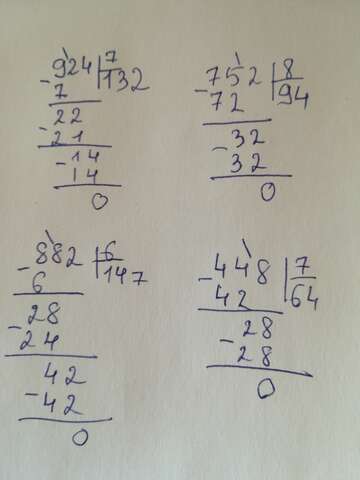 924 7
-7 132
22
-21
-14
14
0
752 8
-72 94
32
-32
0
882 6
-6 147
28
-24
42
-42
0
448 7
-42 64
28
-28
0